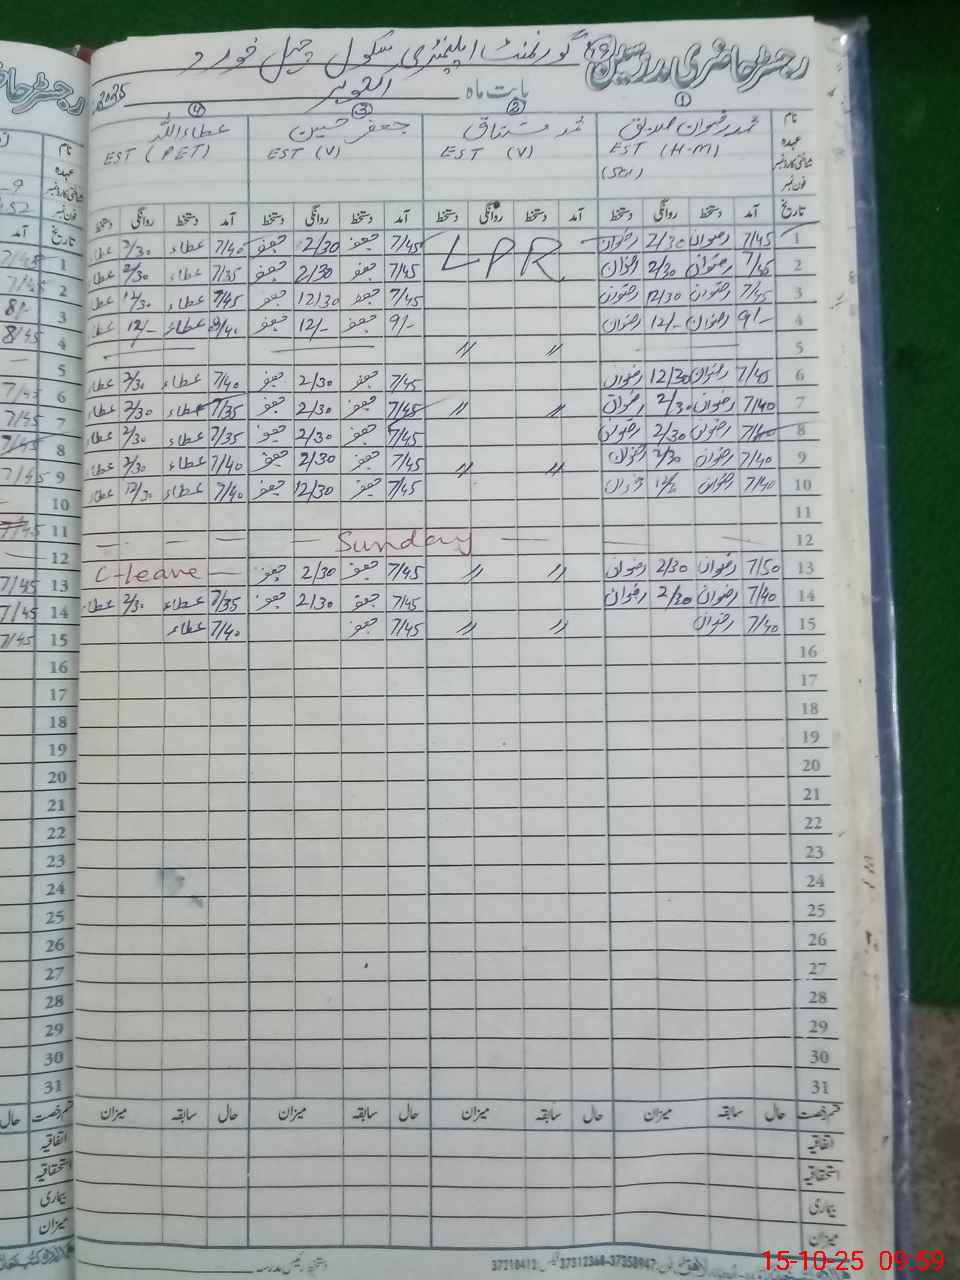 رجسٹر حاضری مدرسین
گورنمنٹ ایلیمنٹری سکول چپل خورد
بابت ماہ اکتوبر 2025
① ② ③ ④
نام محمد رضوان صادق محمد مشتاق جعفر حسین عطاءاللہ
عہدہ EST (H-M) EST (V) EST (V) EST (PET)
شناختی کارڈ نمبر (Sci)
فون نمبر
تاریخ آمد دستخط روانگی دستخط آمد دستخط روانگی دستخط آمد دستخط روانگی دستخط آمد دستخط روانگی دستخط
1 7/45 رضوان 2/30 رضوان LPR 7/45 جعفر 2/30 جعفر 7/40 عطاء 2/30 عطاء
2 7/45 رضوان 2/30 رضوان 7/45 جعفر 2/30 جعفر 7/35 عطاء 2/30 عطاء
3 7/45 رضوان 12/30 رضوان 7/45 جعفر 12/30 جعفر 7/45 عطاء 12/30 عطاء
4 9/- رضوان 12/- رضوان 9/- جعفر 12/- جعفر عطاء 12/- عطاء
5 〃 〃
6 7/45 رضوان 12/30 رضوان 7/45 جعفر 2/30 جعفر 7/40 عطاء 2/30 عطاء
7 7/40 رضوان 2/30 رضوان 〃 〃 7/45 جعفر 2/30 جعفر 7/35 عطاء 2/30 عطاء
8 7/40 رضوان 2/30 رضوان 7/45 جعفر 2/30 جعفر 7/35 عطاء 2/30 عطاء
9 7/40 رضوان 2/30 رضوان 〃 〃 7/45 جعفر 2/30 جعفر 7/40 عطاء 2/30 عطاء
10 7/40 رضوان رضوان 7/45 جعفر 12/30 جعفر 7/40 عطاء 12/30 عطاء
11
12 Sunday
13 7/50 رضوان 2/30 رضوان 〃 〃 7/45 جعفر 2/30 جعفر C-leave
14 7/40 رضوان 2/30 رضوان 7/45 جعفر 2/30 جعفر 7/35 عطاء 2/30 عطاء
15 7/40 رضوان 〃 〃 7/45 جعفر 7/40 عطاء
16
17
18
19
20
21
22
23
24
25
26
27
28
29
30
31
قسم رخصت حال سابقہ میزان حال سابقہ میزان حال سابقہ میزان حال سابقہ میزان
اتفاقیہ
استحقاقیہ
بیماری
میزان
دستخط رئیس مدرسہ
37210412 37312368-37358947
15-10-25 09:59